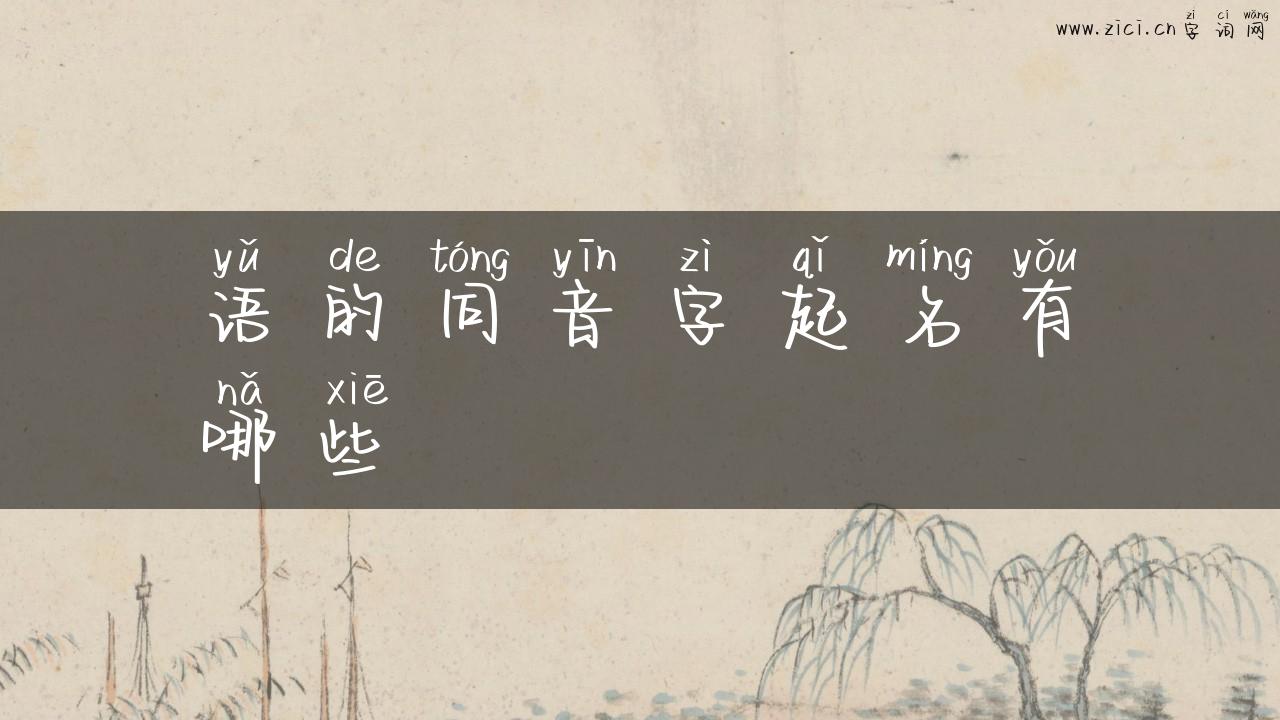 zì cí wǎng
www.zici.cn 字词网
yǔ de tóng yīn zì qǐ míng yǒu
语的同音字起名有
nǎ xiē
哪些